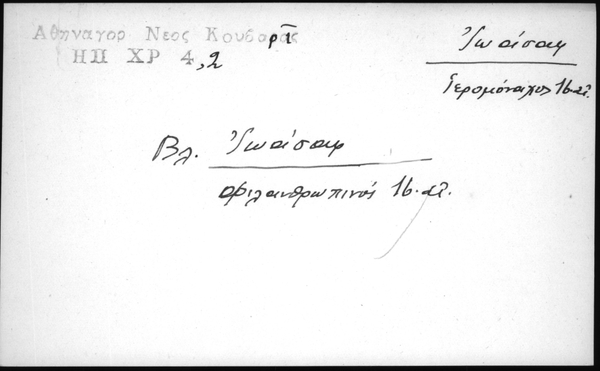 Αθηναγορ Νεος Κουβαρας
ΗΠ ΧΡ 4,2 ρ ῑ
Ἰωάσαφ
Ἱερομόναχος 16. αἰ.
Βλ. Ἰωάσαφ
Φιλανθρωπινός 16. αἰ.